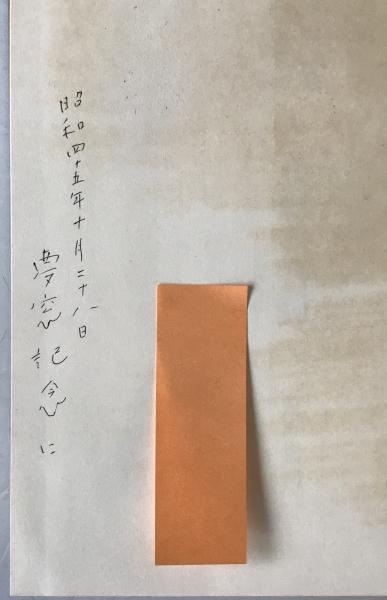 昭和四十五年十月二十八日
夢窓記念に